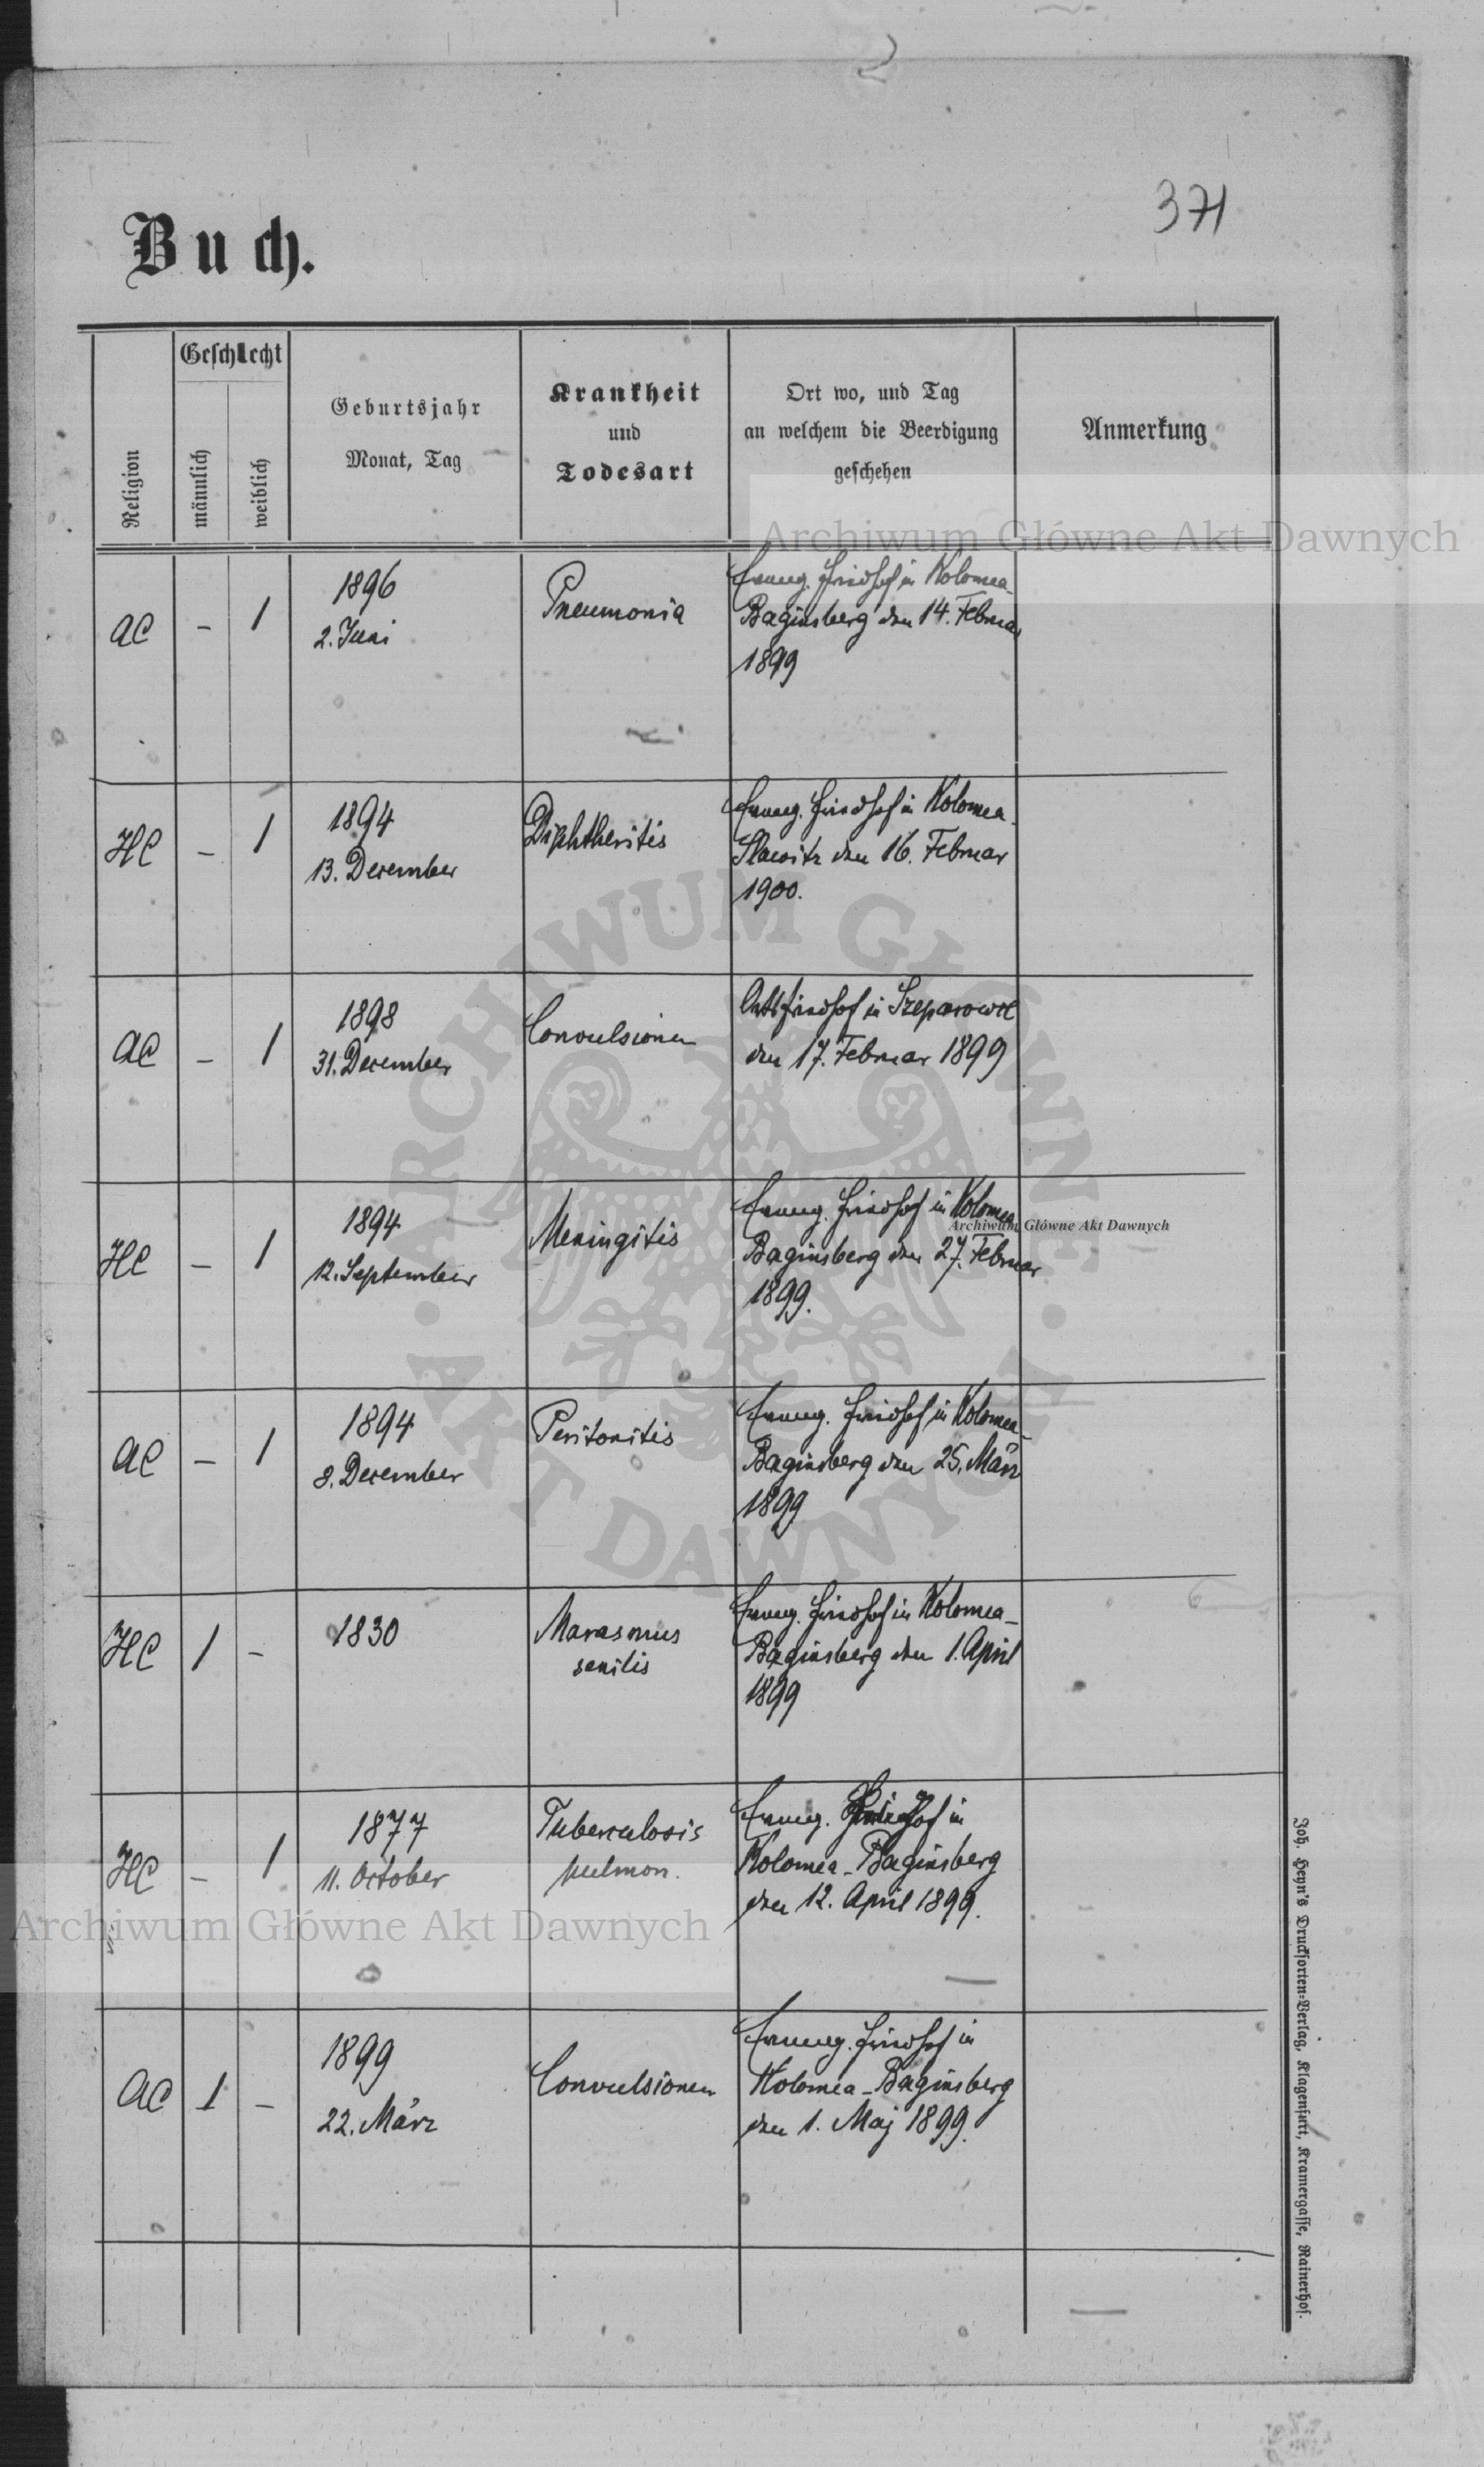 371
Buch.
Religion
Geschlecht
männlich
weiblich
Geburtsjahr
Monat, Tag
Krankheit
und
Todesart
Ort wo, und Tag
an welchem die Beerdigung
geschehen
Anmerkung
Archiwum Główne Akt Dawnych
AC
–
1
1896
2. Juni
Pneumonia
Evang. Friedhof in Kolomea-
Baginsberg den 14. Februar
1899
HC
–
1
1894
13. December
Diphtheritis
Evang. Friedhof in Kolomea-
Slawitz den 16. Februar
1900.
AC
–
1
1898
31. December
Convulsionen
Ortsfriedhof in Szeparowce
den 17. Februar 1899
HC
–
1
1894
12. September
Meningitis
Evang. Friedhof in Kolomea
Archiwum Główne Akt Dawnych
Baginsberg den 27. Februar
1899.
AC
–
1
1894
8. December
Peritonitis
Evang. Friedhof in Kolomea-
Baginsberg den 25. März
1899
HC
1
–
1830
Marasmus
senilis
Evang. Friedhof in Kolomea-
Baginsberg den 1. April
1899
HC
–
1
1877
11. October
Tuberculosis
pulmon.
Evang. Friedhof in
Kolomea-Baginsberg
den 12. April 1899.
Archiwum Główne Akt Dawnych
AC
1
–
1899
22. März
Convulsionen
Evang. Friedhof in
Kolomea-Baginsberg
den 1. Maj 1899.
ARCHIWUM GŁÓWNE
AKT DAWNYCH
Joh. Heyn's Drucksorten-Verlag, Klagenfurt, Kramergasse, Rainerhof.